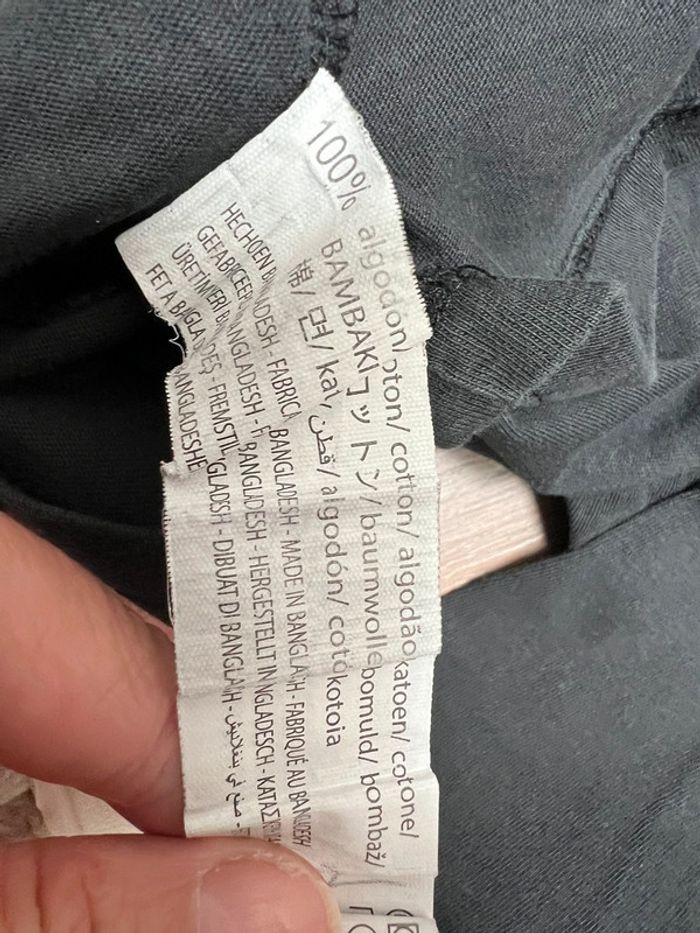 100% algodón/ coton/ cotton/ algodão katoen/ cotone/
BAMBAKI コットン/baumwolle bomuld/ bombaž/
棉/ 면/ قطن/ algodón/ cotó kotoia
HECHO EN BANGLADESH - FABRICA BANGLADESH - MADE IN BANGLADESH - FABRIQUÉ AU BANGLADESH
BANGLADESH - BANGLADESH - HERGESTELLT IN BANGLADESCH -
ÜRETIM YERI BANGLADEŞ - BANGLADESH - DIBUAT DI BANGLADESH - صنع في بنغلاديش -
BANGLADESHE